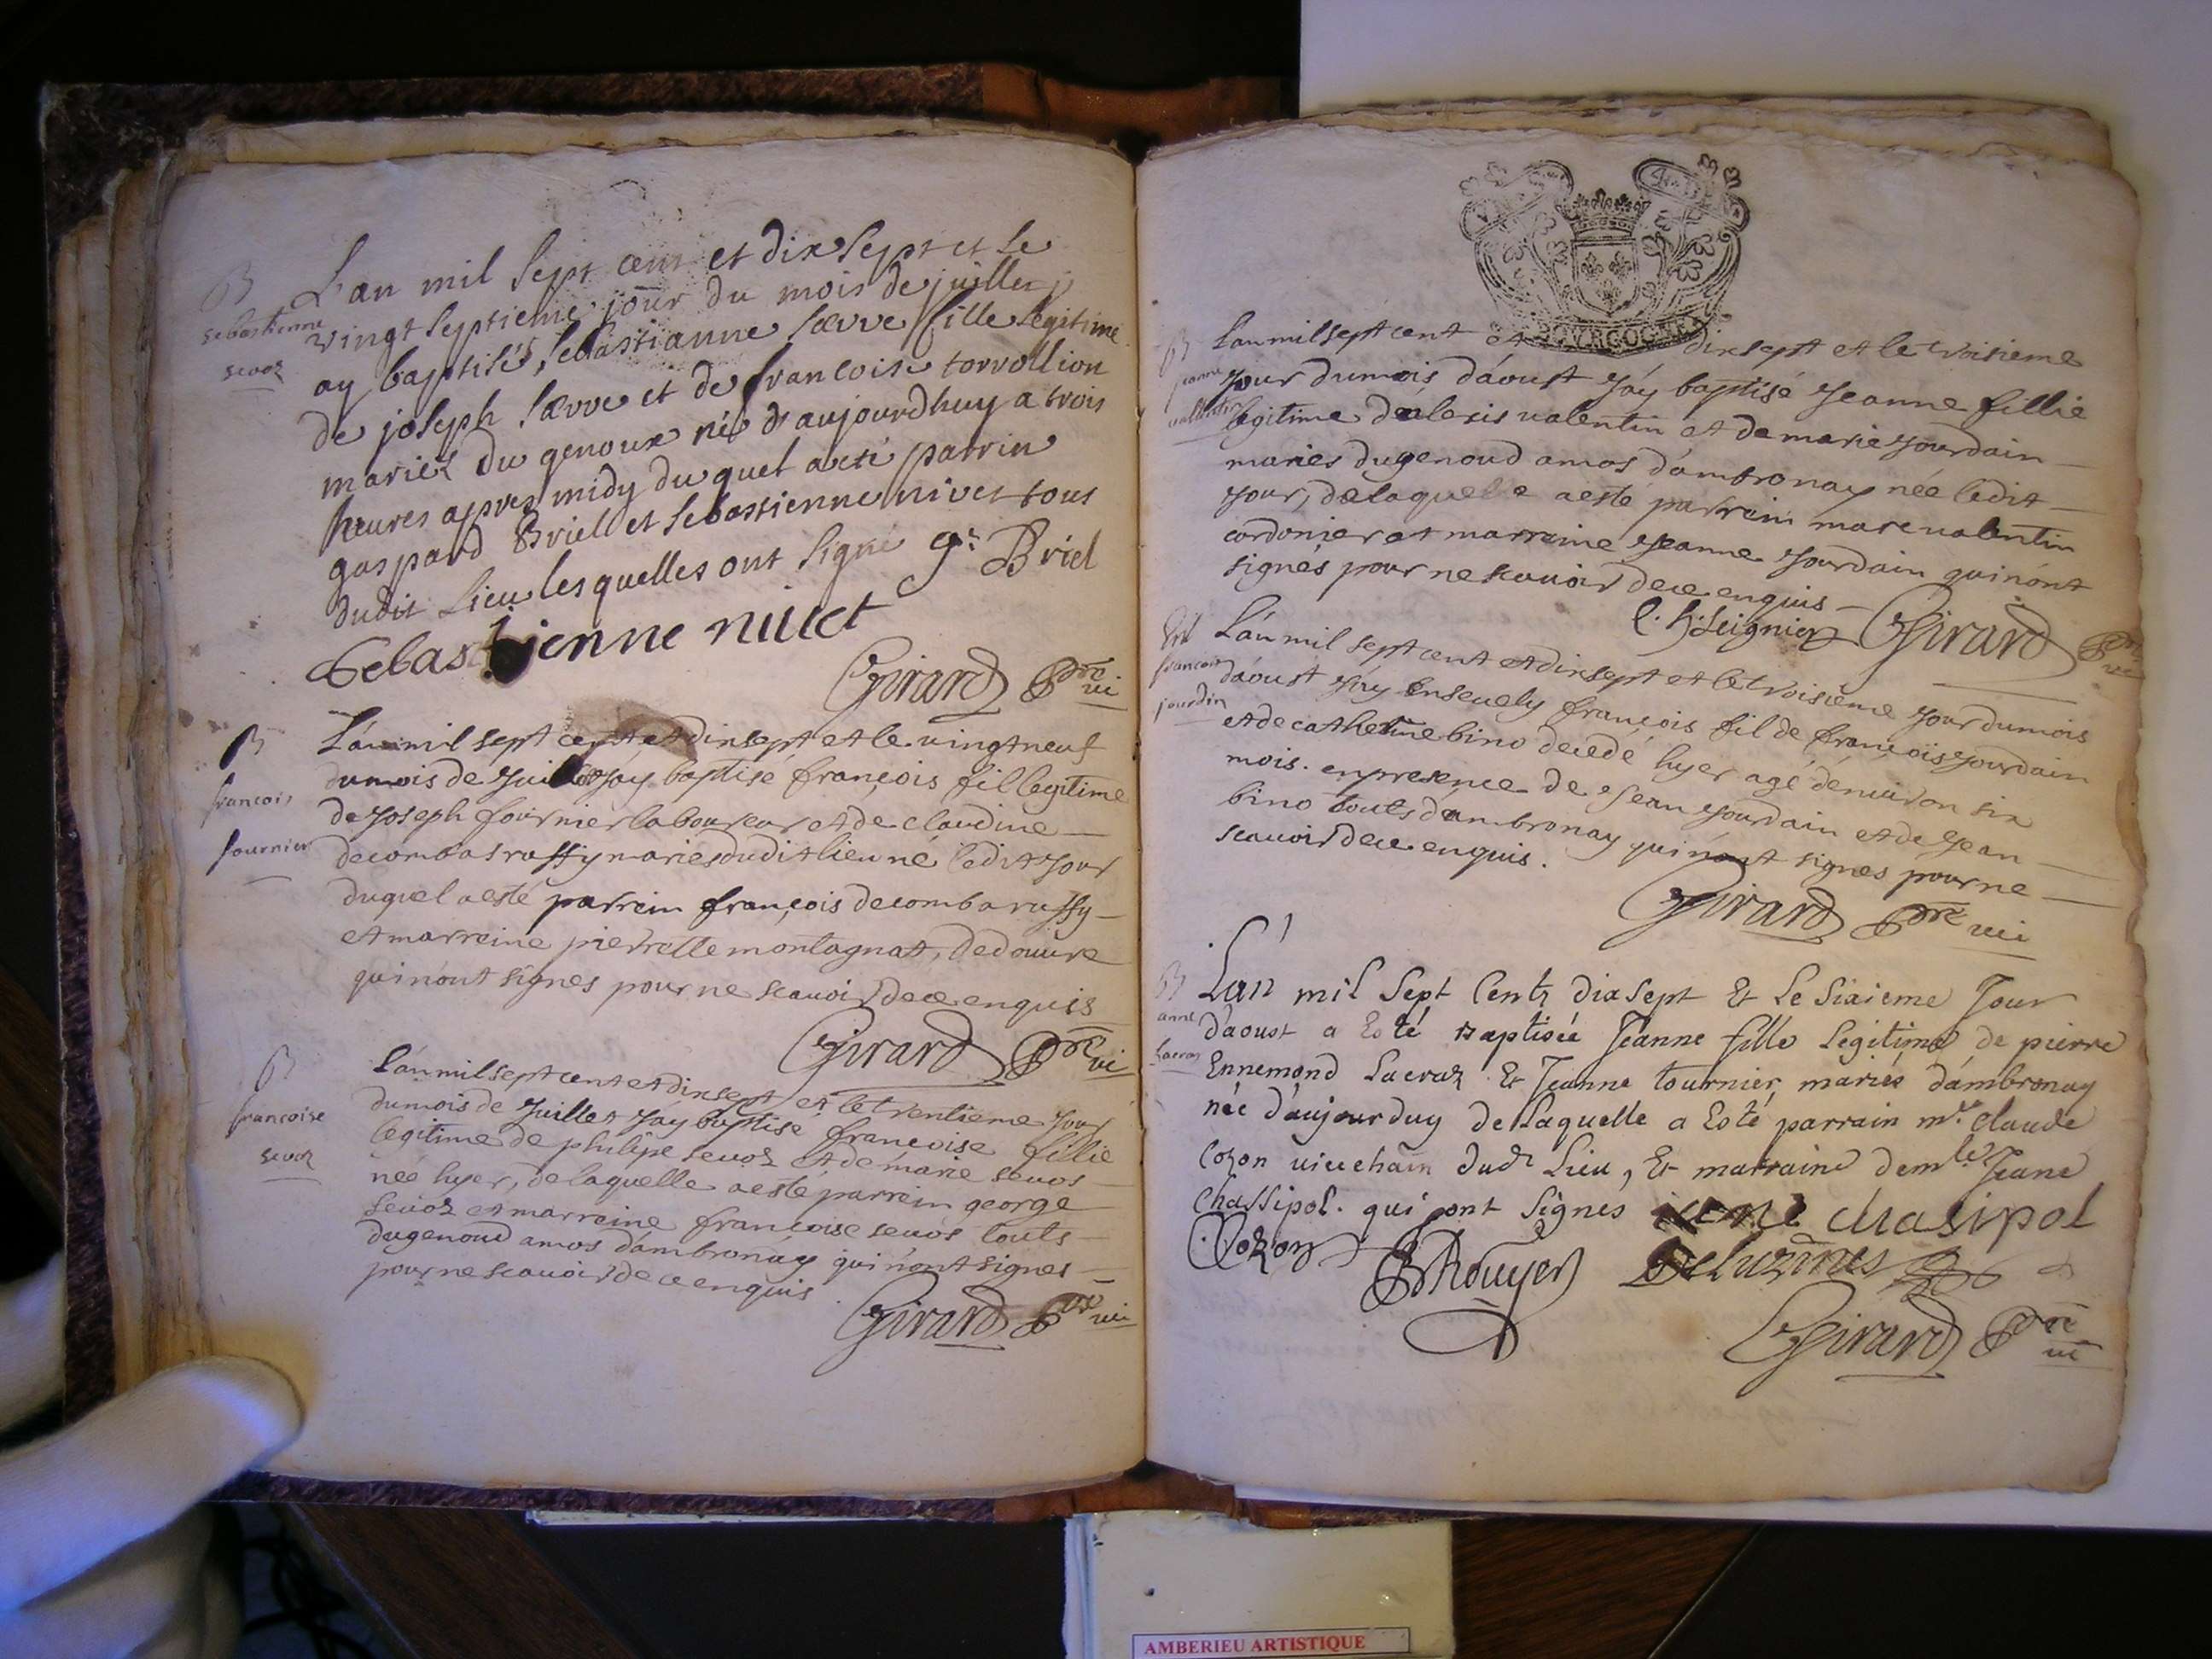 B
Sebastienne
sevoz
L'an mil sept cent et dix sept et le
vingt septieme jour du mois de juillet j
ay baptisés, sebastianne sævve fille legitime
de joseph sævve et de francoise torvollion
mariez du genoux née d'aujourdhuy a trois
heures apres midy du quel a eté parrin
gaspard Briel et sebastienne nivet tous
dudit lieu lesquelles ont signé g: Briel
Sebastienne nivet
Girard Pre vi
B
francois
fournier
L'an mil sept cent et dixsept et le vingt neuf
du mois de Juillet J'ay baptisé françois fil legitime
de Joseph fournier laboureur et de claudine
decombasruffy mariés dudit lieu né ledit Jour
duquel a esté parrein françois decombaruffy
et marreine pierrette montagnat, dedouvre
qui n'ont signés pour ne scauoir de ce enquis
Girard Pre vi
B
francoise
sevoz
L'an mil sept cent et dixsept et le trentieme Jour
du mois de Juillet Jay baptisé francoise fillie
legitime de philipe sevoz et de marie sevos
née hyer, de laquelle a esté parrein george
sevoz et marreine francoise sevos touts
dugenoud amos d'ambronay qui n'ont signes
pour ne scauoir de ce enquis
Girard Pre vi
BOVRGOGNE
B
jeanne
vallentin
L'an mil sept cent et dixsept et le troisieme
Jour dumois d'aoust J'ay baptisé Jeanne fillie
legitime d'alexis valentin et de marie Jourdain
maries dugenoud amos d'ambronay née ledit
Jour, de laquelle a esté parrein marc valentin
cordonier et marreine Jeanne Jourdain qui n'ont
signés pour ne scauoir de ce enquis
Girard Pre vi
francois
jourdin
L'an mil sept cent et dixsept et le troisieme Jour dumois
d'aoust J'ay Enseuely françois fil de françois Jourdain
et de catherine bino decedé hyer agé d'enuiron six
mois. en presence de Jean Jourdain et de Jean
bino touts d'ambronay qui n'ont signes pour ne
scauoir de ce enquis.
Girard Pre vi
B
anne
Lacroz
L'an mil sept Centz dix sept Et le Sixieme Jour
d'aoust a Esté Baptisée Jeanne fille Legitime de pierre
Ennemond Lacraz Et Jeanne tournier mariés d'ambronay
née d'aujourduy de Laquelle a Esté parrain mr. claude
Cozon dudt Lieu, Et marraine demlle Jeane
Chassipol. qui ont Signés jeane chasipol
Cozon
Girard Pre vi
AMBERIEU ARTISTIQUE